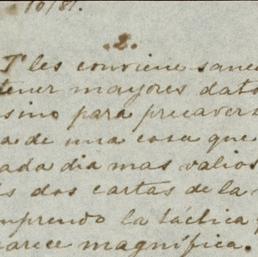 10/81.
.2.
I les conviene sane
tener mayores dato
sino para precaver
a de una cosa que
ada dia mas valios
s dos cartas de la
mprendo la táctica
parece magnífica.